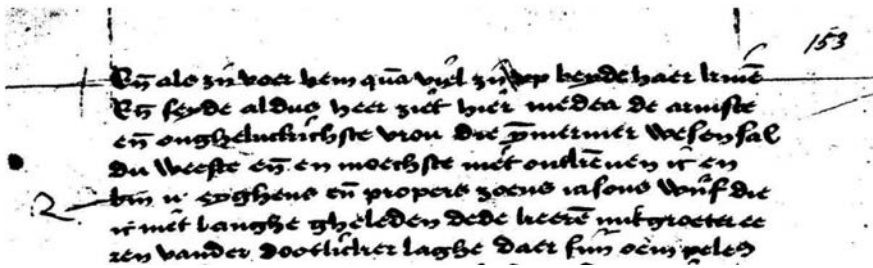 153
Eñ als zij voer hem quā viel zij op beyde haer knien
Eñ seyde aldus heer ziet hier medea de armste
eñ ongheluckichste vrou die ỹmermer wesen sal
du weeste eñ en moechste niet ontkēnen ic en
2 bin u eyghens eñ propers zoens iasons wijf die
ic niet langhe gheleden dede keerē mit groeter ee
ren vander dootlicker laghe daer sijn oem peleus